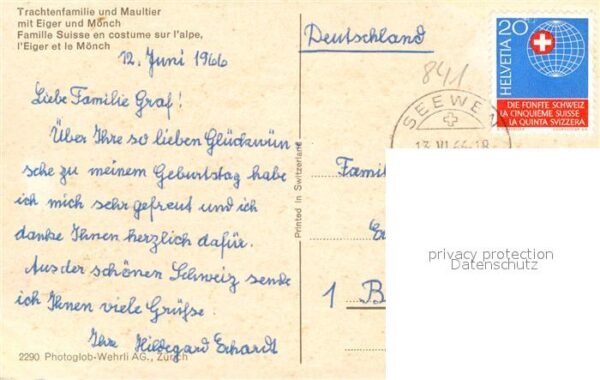 Trachtenfamilie und Maultier
mit Eiger und Mönch
Famille Suisse en costume sur l'alpe,
l'Eiger et le Mönch
12. Juni 1966
Liebe Familie Graf!
Über Ihre so lieben Glückwün
sche zu meinem Geburtstag habe
ich mich sehr gefreut und ich
danke Ihnen herzlich dafür.
Aus der schönen Schweiz sende
ich Ihnen viele Grüße.
Ihre Hildegard Erhardt
2290 Photoglob-Wehrli AG., Zürich
Printed in Switzerland
Deutschland
841
HELVETIA 20
DIE FÜNFTE SCHWEIZ
LA CINQUIÈME SUISSE
LA QUINTA SVIZZERA
SEEWE
13.VI.66-18
Famil
1 B
privacy protection
Datenschutz